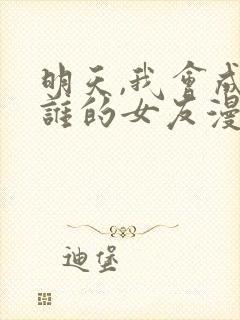 明天,我會成
誰的女友漫
迪堡